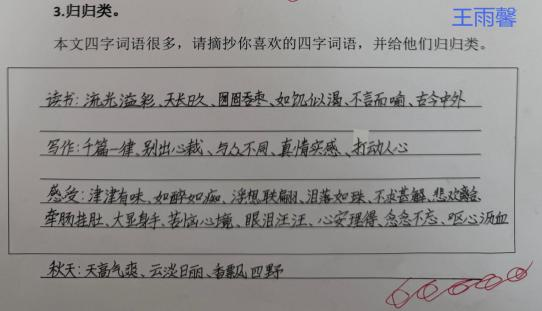 王雨馨
3.归归类。
本文四字词语很多，请摘抄你喜欢的四字词语，并给他们归归类。
读书:流光溢彩、天长日久、囫囵吞枣、如饥似渴、不言而喻、古今中外
写作:千篇一律、别出心裁、与众不同、真情实感、打动人心
感受:津津有味、如醉如痴、浮想联翩、泪落如珠、不求甚解、悲欢离合、
牵肠挂肚、大显身手、苦恼心境、眼泪汪汪、心安理得、念念不忘、呕心沥血
秋天:天高气爽、云淡日丽、香飘四野